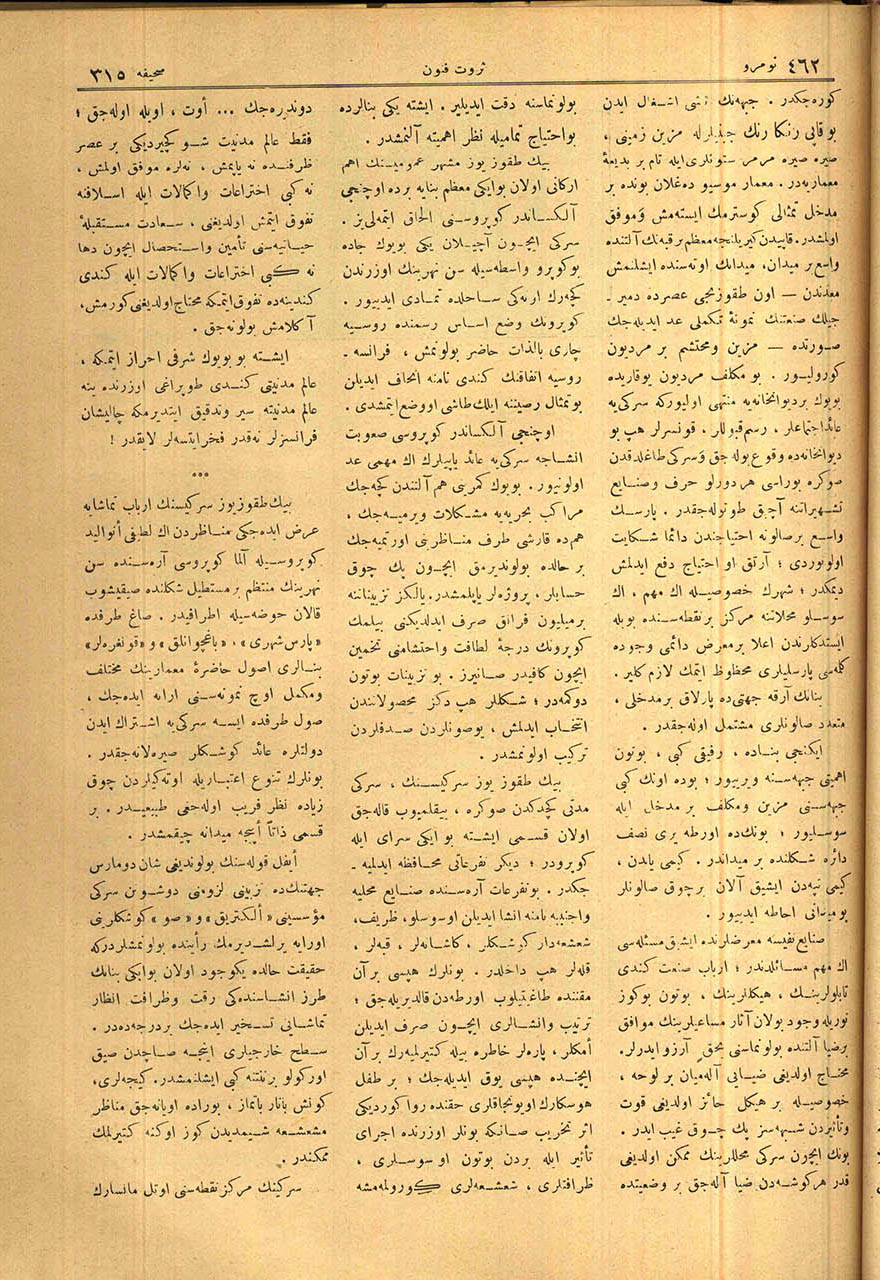 نومرو ٤٦٢
ثروت فنون
صحیفه ٣١٥
كوره‌جكدر . جبهه‌نك اشغال ایدن
بو قاپی رنكا رنك چینیلرله مزین زمینی ،
صیره صیره مرمر ستونلری ایله تام بر بدیعهٔ
معماریه‌در . معمار موسیو ده‌غلان بونده بر
مدخل تمثالی كوسترمك ایسته‌مش وموفق
اولمشدر . قاپیدن كیریلنجه معظم بر قبه‌نك آلتنده
واسع بر میدان ، میدانك اوته‌سنده ایشلنمش
معدندن — اون طقوزنجی عصرده دمیر -
جیلك صنعتنك نمونهٔ تكملی عد ایدیله‌جك
صورتده — مزین ومحتشم بر مردیون
كورولیور . بو مكلف مردیون یوقاریده
بویوك بر دیوانخانه‌یه منتهی اولیوركه سركی‌یه
عائد اجتماعلر ، رسم قبوللر ، قونسرلر هپ بو
دیوانخانه‌ده وقوع بوله‌جق وسركی طاغلدقدن
صوكره بوراسی هر دورلو حرف وصنایع
تشهیراتنه آچیق طوتوله‌جقدر . پارسك
واسع بر صالونه احتیاجندن دائما شكایت
اولونوردی ؛ آرتق او احتیاج دفع ایدلمش
دیمكدر ؛ شهرك خصوصیله اك مهم ، اك
سوسلو محلاتنه مركز بر نقطه‌سنده بویله
ایستدكارندن اعلا بر معرض دائمی وجوده
كلمه‌سی پارسلیلری محظوظ ایتمك لازم كلیر .
بنانك آرقه جهتی‌ده پارلاق بر مدخلی ،
متعدد صالونلری مشتمل اوله‌جقدر .
ایكنجی بناده ، رفیقی كبی ، بوتون
اهمیتی جبهه‌سنه ویریور ؛ بوده اونك كبی
جبهه‌سنی مزین ومكلف بر مدخل ایله
سوسلیور ؛ بونك‌ده اورطه یری نصف
دائره شكلنده بر میداندر . كیمی یاندن ،
كیمی تپه‌دن ایشیق آلان بر چوق صالونلر
بو میدانی احاطه ایدییور .
صنایع نفیسه معرضلرنده ایشیق مسئله‌سی
اك مهم مسائلدندر ؛ ارباب صنعت كندی
تابلولرینك ، هیكللرینك ، بوتون بو كوز
نوریله وجود بولان آثار مساعیلرینك موافق
بر ضیا آلتنده بولونماسنی بحق آرزو ایدرلر .
محتاج اولدیغی ضیایی آله‌میان بر لوحه ،
خصوصیله بر هیكل حائز اولدیغی قوت
وتأثیردن شبهه‌سز پك چوق غیب ایدر .
بونك ایچون سركی محللرینك ممكن اولدیغی
قدر هر كوشه‌دن ضیا آله‌جق بر وضعیتده
بولونماسنه دقت ایدیلیر . ایشته یكی بنالرده
بو احتیاج تمامیله نظر اهمیته آلنمشدر .
بیك طقوز یوز مشهر عمومیسنك اهم
اركانی اولان بو ایكی معظم بنایه برده اوچنجی
آلكساندر كوپروسنی الحاق ایتمه‌لی‌یز .
سركی ایچون آچیلان یكی بویوك جاده
بو كوپرو واسطه‌سیله سن نهرینك اوزرندن
كچه‌رك اوته‌كی ساحلده تمادی ایدییور .
كوپرونك وضع اساس رسمنده روسیه
چاری بالذات حاضر بولونمش ، فرانسه -
روسیه اتفاقنك كندی نامنه اتحاف ایدیلن
بو تمثال رصیننه ایلك طاشی او وضع ایتمشدی .
اوچنجی آلكساندر كوپروسی صعوبت
انشاجه سركی‌یه عائد یاپیلرك اك مهمی عد
اولونیور . بویوك كمرینی هم آلتندن كچه‌جك
مراكب بحریه‌یه مشكلات ویرمیه‌جك ،
هم‌ده قارشی طرف مناظرینی اورتمیه‌جك
بر حالده بولوندیرمق ایچون پك چوق
حسابلر ، پروژه‌لر یاپلمشدر . یالكز تزییناتنه
بر میلیون فرانق صرف ایدلدیكنی بیلمك
كوپرونك درجهٔ لطافت واحتشامنی تخمین
ایچون كافیدر صانیرز . بو تزیینات بوتون
دوكمه‌در ؛ شكللر هپ دكز محصولاتندن
انتخاب ایدلمش ، یوصونلردن صدفلردن
تركیب اولونمشدر .
بیك طقوز یوز سركیسنك ، سركی
مدتی كچدكدن صوكره ، ییقلمیوب قاله‌جق
اولان قسمی ایشته بو ایكی سرای ایله
كوپرودر ؛ دیكر تفرعاتی محافظه ایدلمیه -
جكدر . بو تفرعات آره‌سنده صنایع محلیه
واجنبیه نامنه انشا ایدیلن او سوسلو ، ظریف ،
شعشعه‌دار كوشكلر ، كاشانه‌لر ، قبه‌لر ،
قله‌لر هپ داخلدر . بونلرك هپسی بر آن
مقننده طاغیتیلوب اورطه‌دن قالدیریله‌جق ؛
ترتیب وانشالری ایچون صرف ایدیلن
أمكلر ، پاره‌لر خاطره بیله كتیرلمیه‌رك بر آن
ایچنده هپسی یوق ایدیله‌جك ؛ بر طفل
هوسكارك اویونجاقلری حقنده روا كوردیكی
اثر تخریب صانكه بونلر اوزرنده اجرای
تأثیر ایله بردن بوتون او سوسلری ،
ظرافتلری ، شعشعه‌لری كورولمه‌مشه
دوندیره‌جك ... أوت ، اویله اوله‌جق ؛
فقط عالم مدنیت شو كچیردیكی بر عصر
ظرفنده نه یاپمش ، نه‌لره موفق اولمش ،
نه كبی اختراعات واكمالات ایله اسلافنه
تفوق ایتمش اولدیغنی ، سعادت مستقبلهٔ
حیاتیه‌سنی تأمین واستحصال ایچون دها
نه كبی اختراعات واكمالات ایله كندی
كندینه‌ده تفوق ایتمكه محتاج اولدیغنی كورمش ،
آكلامش بولونه‌جق .
ایشته بو بویوك شرفی احراز ایتمكه ،
عالم مدنیتی كندی طوپراغی اوزرنده ینه
عالم مدنیته سیر وتدقیق ایتدیرمكه چالیشان
فرانسزلر نه‌قدر فخر ایتسه‌لر لایقدر !
***
بیك طقوز یوز سركیسنك ارباب تماشایه
عرض ایده‌جكی مناظردن اك لطیفی أنوالید
كوپروسیله آلما كوپروسی آره‌سنده سن
نهرینك منتظم بر مستطیل شكلنده صیقیشوب
قالان حوضه‌سیله اطرافیدر . صاغ طرفده
«پارس شهری» ، «باغچوانلق» و «قونغره‌لر»
بنالری اصول حاضرهٔ معمارینك مختلف
ومكمل اوچ نمونه‌سنی ارائه ایده‌جك ،
صول طرفده ایسه سركی‌یه اشتراك ایدن
دولتلره عائد كوشكلر صیره‌لانه‌جقدر .
بونلرك تنوع اعتباریله اوته‌كیلردن چوق
زیاده نظر فریب اوله‌جغی طبیعیدر . بر
قسمی ذاتاً أییجه میدانه چیقمشدر .
أیفل قوله‌سنك بولوندیغی شان دومارس
جهتنك‌ده تزیینی لزومنی دوشونن سركی
مؤسسینی «ألكتریق» و «صو» كوشكلرینی
اورایه یرلشدیرمك رأینده بولونمشلردركه
حقیقت حالده یكوجود اولان بو ایكی بنانك
طرز انشاسنده‌كی رقت وظرافت انظار
تماشایی تسخیر ایده‌جك بر درجه‌ده‌در .
سطح خارجیلری اینجه صاچدن صیق
اوركولو بر تنتنه كبی ایشلنمشدر . كیجه‌لری ،
كونش باتار باتماز ، بوراده اویانه‌جق مناظر
مشعشعه شیمدیدن كوز اوكنه كتیرلمك
ممكندر .
سركینك مركز نقطه‌سنی اوتل مانسارك